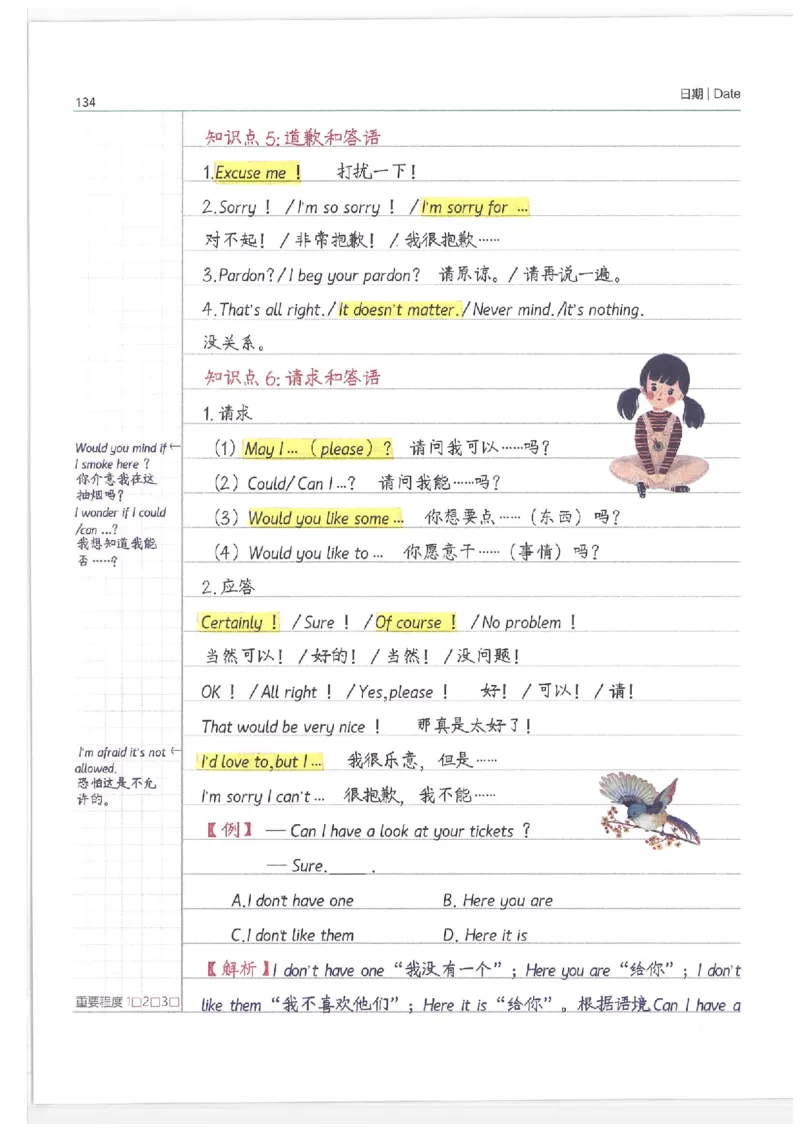 134
日期 | Date
知识点 5:道歉和答语
1.Excuse me ! 打扰一下!
2.Sorry ! /I'm so sorry ! /I'm sorry for ...
对不起! /非常抱歉! /我很抱歉……
3.Pardon?/I beg your pardon? 请原谅。/请再说一遍。
4.That's all right./It doesn't matter./Never mind./It's nothing.
没关系。
知识点 6:请求和答语
1.请求
(1) May I ... (please) ? 请问我可以……吗?
(2) Could/Can I ...? 请问我能……吗?
(3) Would you like some ... 你想要点……(东西)吗?
(4) Would you like to ... 你愿意干……(事情)吗?
2.应答
Certainly ! /Sure ! /Of course ! /No problem !
当然可以! /好的! /当然! /没问题!
OK ! /All right ! /Yes,please ! 好! /可以! /请!
That would be very nice ! 那真是太好了!
I'd love to,but I ... 我很乐意,但是……
I'm sorry I can't ... 很抱歉,我不能……
【例】 — Can I have a look at your tickets ?
— Sure.____ .
A.I don't have one B. Here you are
C.I don't like them D. Here it is
【解析】I don't have one “我没有一个”;Here you are “给你”;I don't
like them “我不喜欢他们”;Here it is “给你”。根据语境Can I have a
Would you mind if←
I smoke here ?
你介意我在这
抽烟吗?
I wonder if I could
/can ...?
我想知道我能
否……?
I'm afraid it's not ←
allowed.
恐怕这是不允
许的。
重要程度 1□2□3□